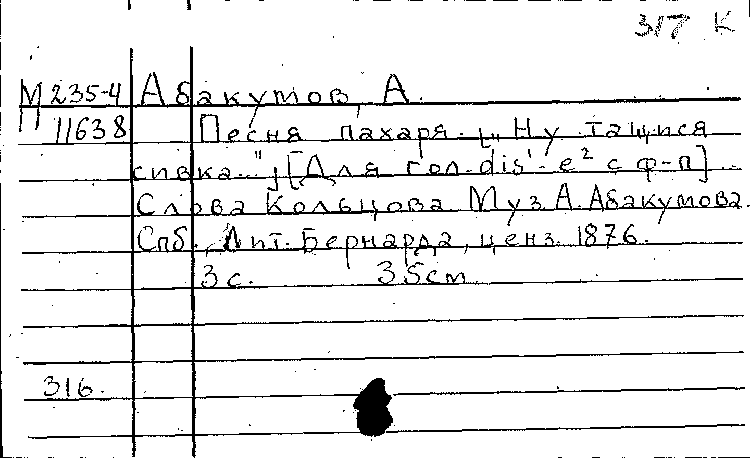 317 К
М 235-4 Абакумов, А.
П 11638 Песня пахаря. „Ну тащися
сивка..."] [Для гол. dis¹-e² с ф-п]
Слова Кольцова Муз. А. Абакумова.
Спб., Лит. Бернарда, ценз. 1876.
3 с. 35 cm
316.